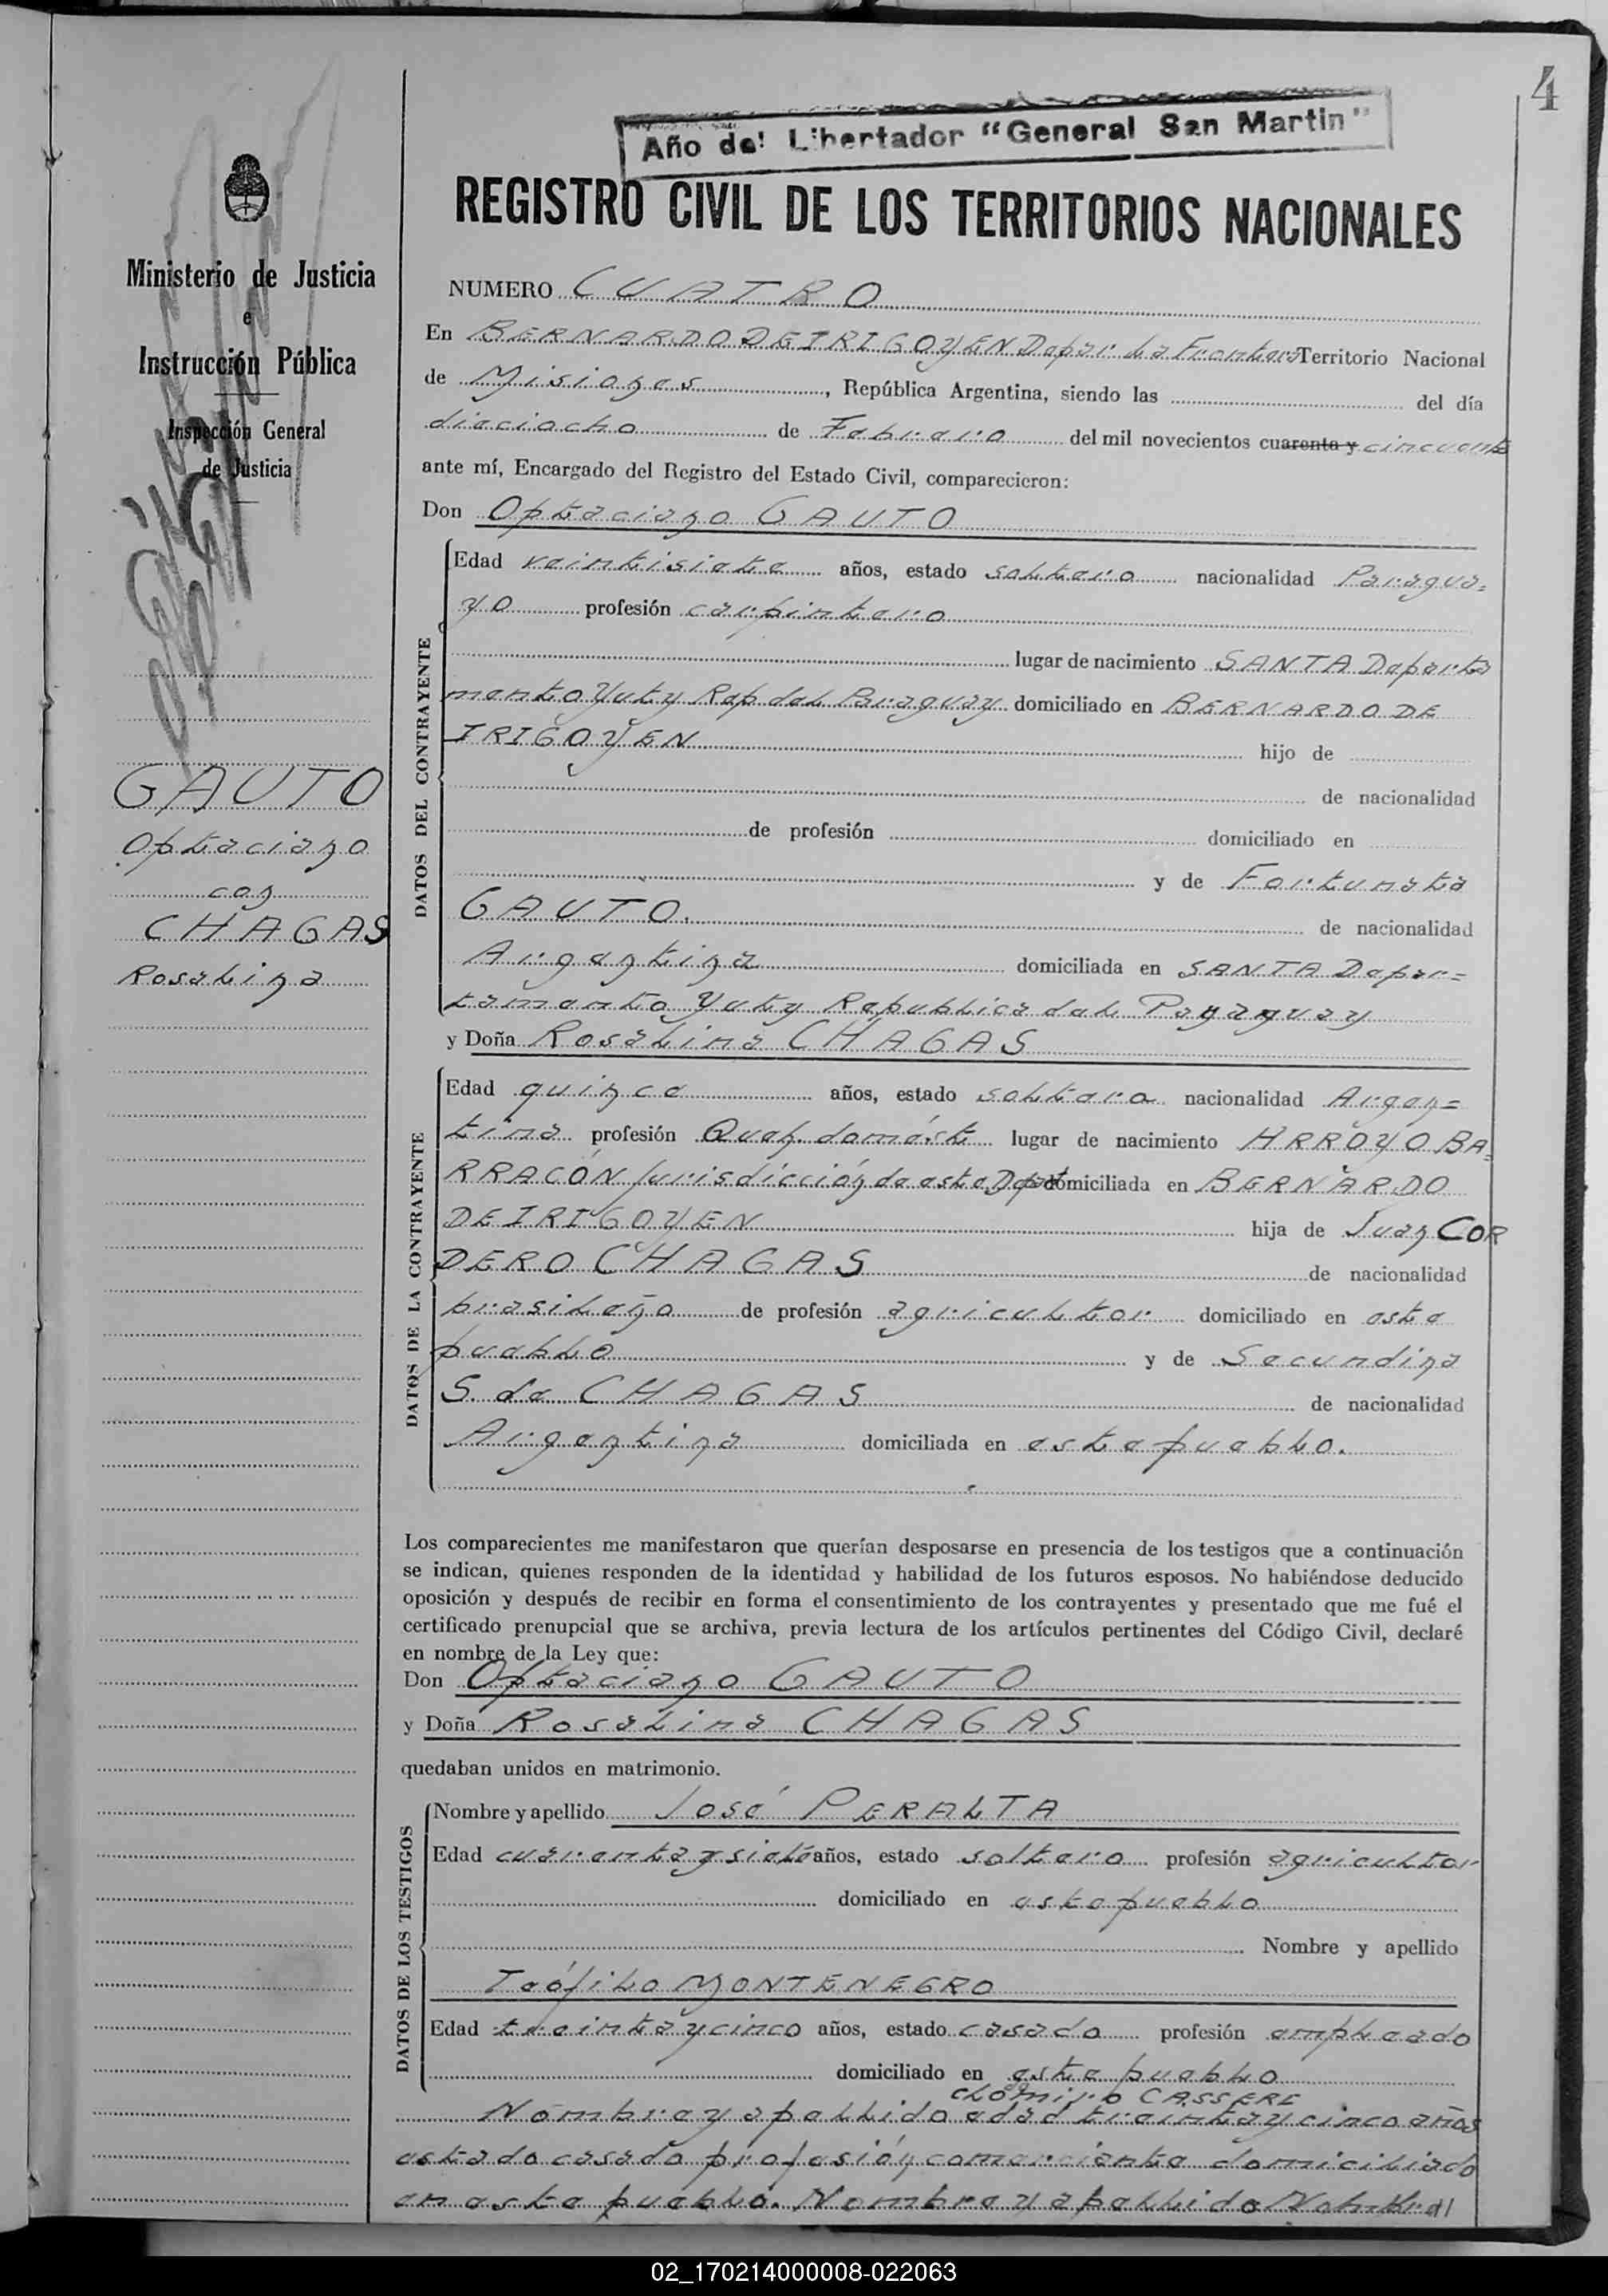 4
Año del Libertador "General San Martin"
REGISTRO CIVIL DE LOS TERRITORIOS NACIONALES
Ministerio de Justicia
e
Instrucción Pública
Inspección General
de Justicia
GAUTO
Optaciano
con
CHAGAS
Rosalina
NUMERO CUATRO
En BERNARDO DE IRIGOYEN Depar. La Frontera Territorio Nacional
de Misiones, República Argentina, siendo las del día
dieciocho de Febrero del mil novecientos cuarenta y cincuenta
ante mí, Encargado del Registro del Estado Civil, comparecieron:
Don Optaciano GAUTO
DATOS DEL CONTRAYENTE
Edad veintisiete años, estado soltero nacionalidad Paragua=
yo profesión carpintero
lugar de nacimiento SANTA Departa
mento Yuty Rep del Paraguay domiciliado en BERNARDO DE
IRIGOYEN hijo de
de nacionalidad
de profesión domiciliado en
y de Fortunata
GAUTO. de nacionalidad
Argentina domiciliada en SANTA Depar=
tamento Yuty Republica del Paraguay
y Doña Rosalina CHAGAS
DATOS DE LA CONTRAYENTE
Edad quince años, estado soltera nacionalidad Argen=
tina profesión Queh. domést. lugar de nacimiento ARROYO BA=
RRACÓN jurisdicción de este Dept domiciliada en BERNARDO
DE IRIGOYEN hija de Juan COR
DERO CHAGAS de nacionalidad
brasileño de profesión agricultor domiciliado en este
pueblo y de Secundina
S. de CHAGAS de nacionalidad
Argentina domiciliada en este pueblo.
Los comparecientes me manifestaron que querían desposarse en presencia de los testigos que a continuación
se indican, quienes responden de la identidad y habilidad de los futuros esposos. No habiéndose deducido
oposición y después de recibir en forma el consentimiento de los contrayentes y presentado que me fué el
certificado prenupcial que se archiva, previa lectura de los artículos pertinentes del Código Civil, declaré
en nombre de la Ley que:
Don Optaciano GAUTO
y Doña Rosalina CHAGAS
quedaban unidos en matrimonio.
DATOS DE LOS TESTIGOS
Nombre y apellido José PERALTA
Edad cuarenta y siete años, estado soltero profesión agricultor
domiciliado en este pueblo
Nombre y apellido
Teófilo MONTENEGRO
Edad treinta y cinco años, estado casado profesión empleado
domiciliado en este pueblo
CLOmiro CASSERE
Nombre y apellido edad treinta y cinco años
estado casado profesión comerciante domiciliado
en este pueblo. Nombre y apellido
02_170214000008-022063